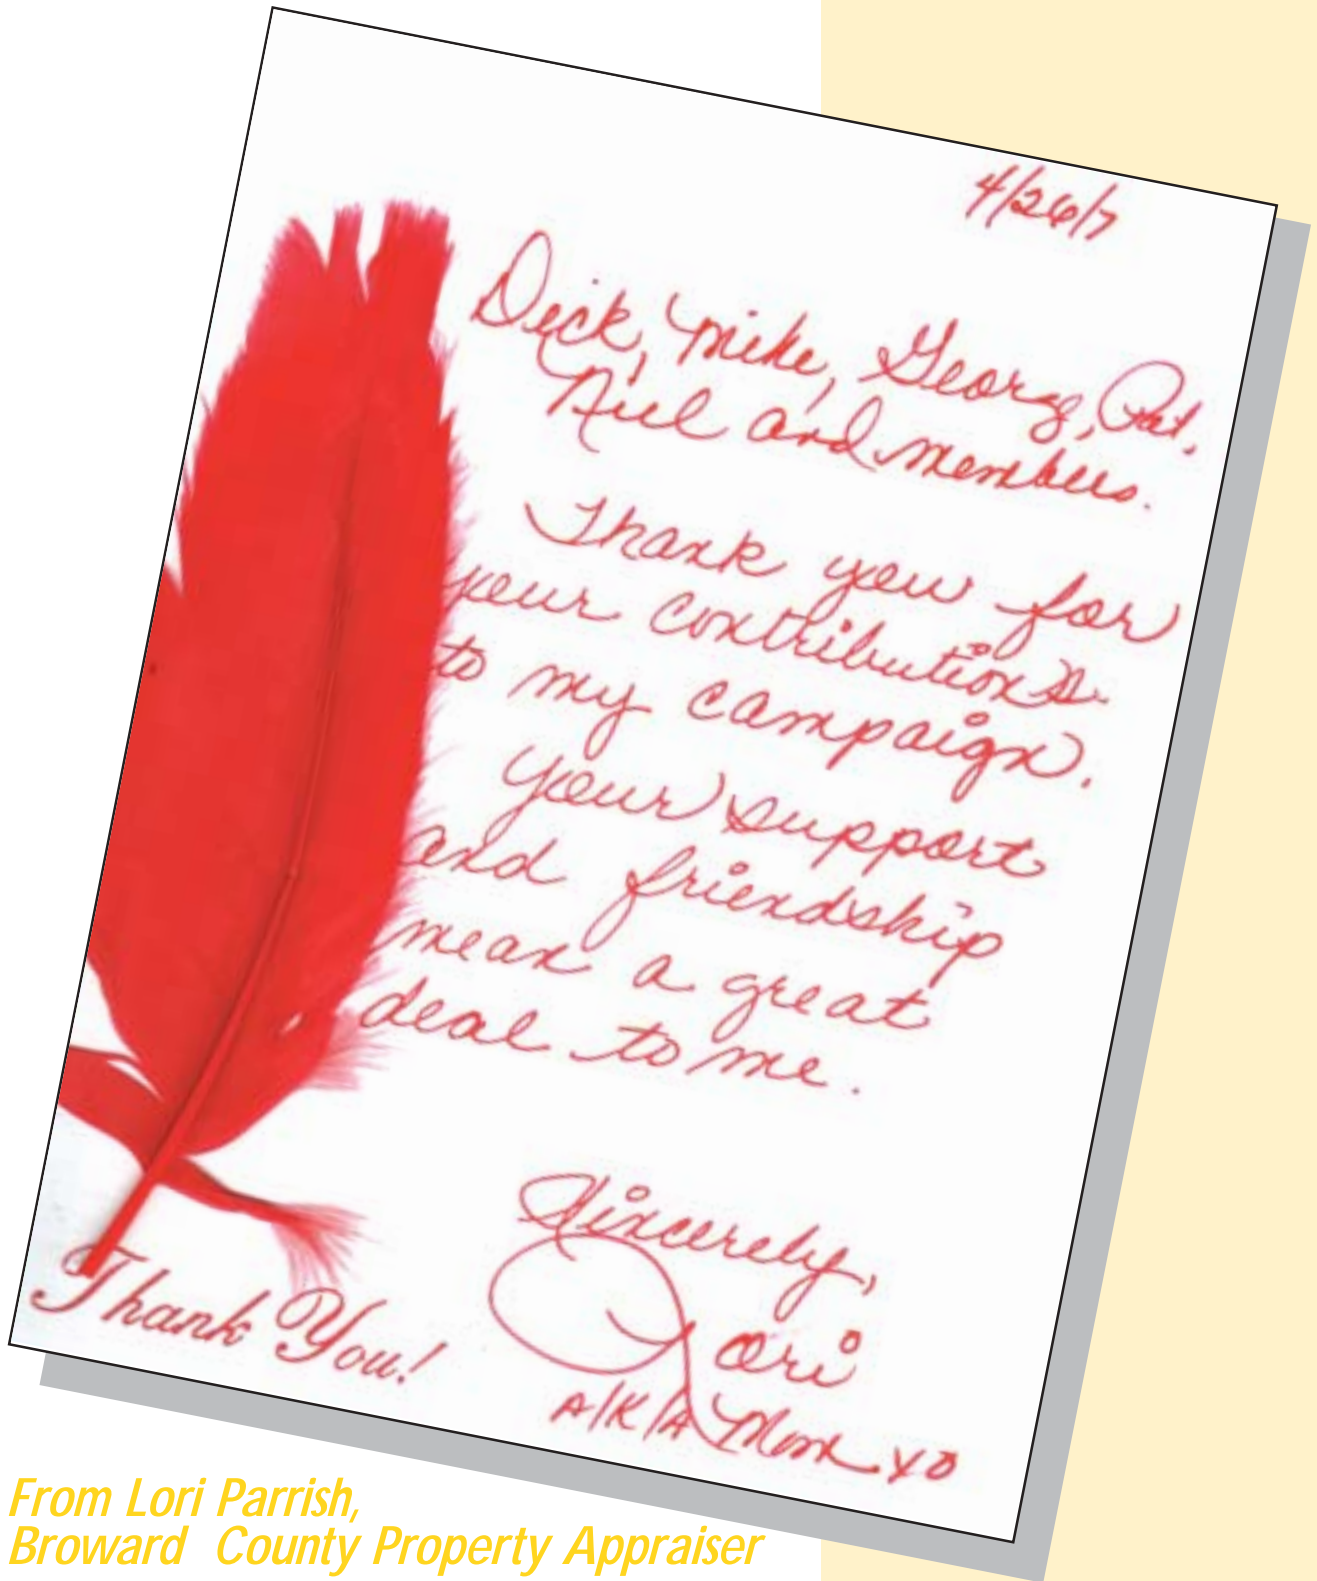 4/26/7
Dick, Mike, Georg, Pat,
Niel and members.
Thank you for
your contributions
to my campaign.
Your support
and friendship
mean a great
deal to me.
Sincerely,
Lori
A/K/A Mom XO
Thank You!
From Lori Parrish,
Broward County Property Appraiser